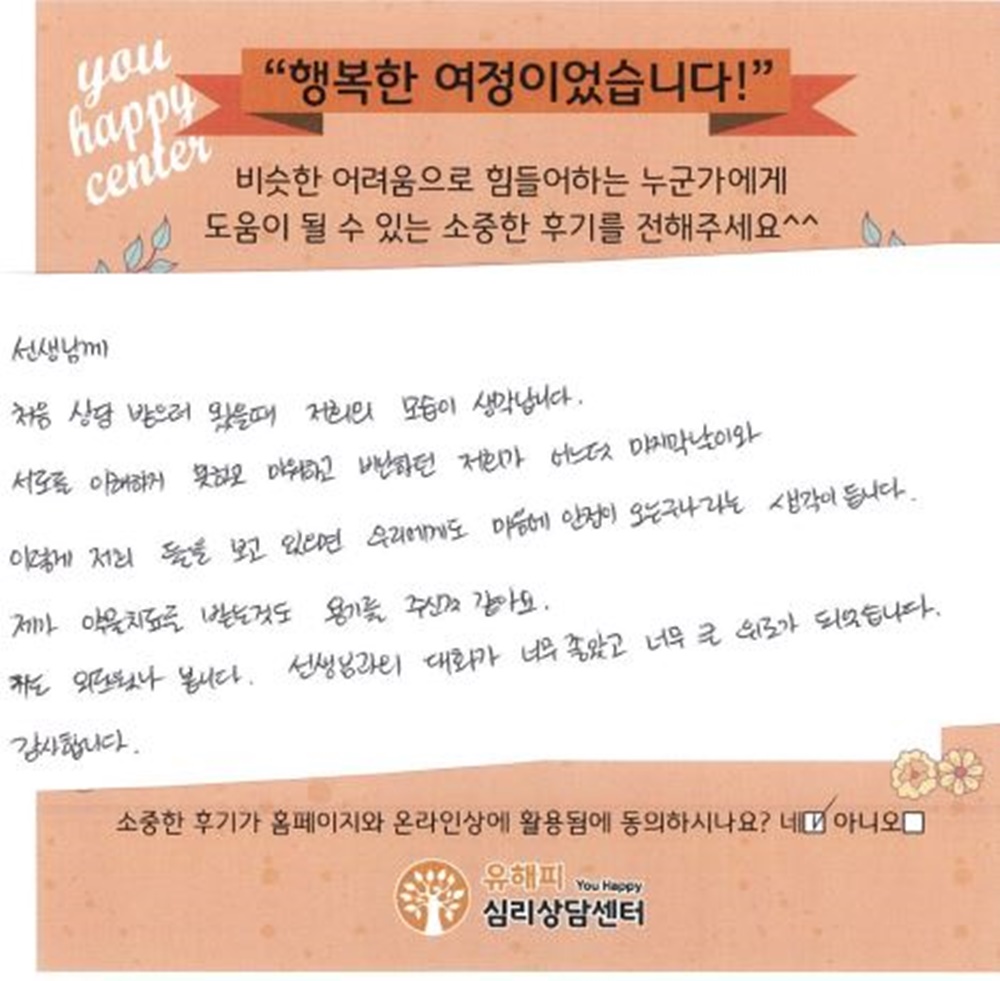 you
happy
center
“행복한 여정이었습니다!”
비슷한 어려움으로 힘들어하는 누군가에게
도움이 될 수 있는 소중한 후기를 전해주세요^^
선생님께
처음 상담 받으러 왔을때 저희의 모습이 생각납니다.
서로를 이해하지 못하고 미워하고 비난하던 저희가 어느덧 마지막날이와
이렇게 저희 둘을 보고 있으면 우리에게도 마음에 안정이 오는구나라는 생각이 듭니다.
제가 약물치료를 받는것도 용기를 주신것 같아요.
봅니다. 선생님과의 대화가 너무 좋았고 너무 큰 위로가 되었습니다.
감사합니다.
소중한 후기가 홈페이지와 온라인상에 활용됨에 동의하시나요? 네 아니오
유해피 You Happy
심리상담센터